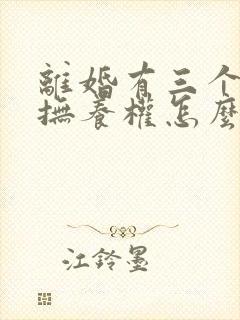 離婚有三个
撫養權怎麼
江鈴墨